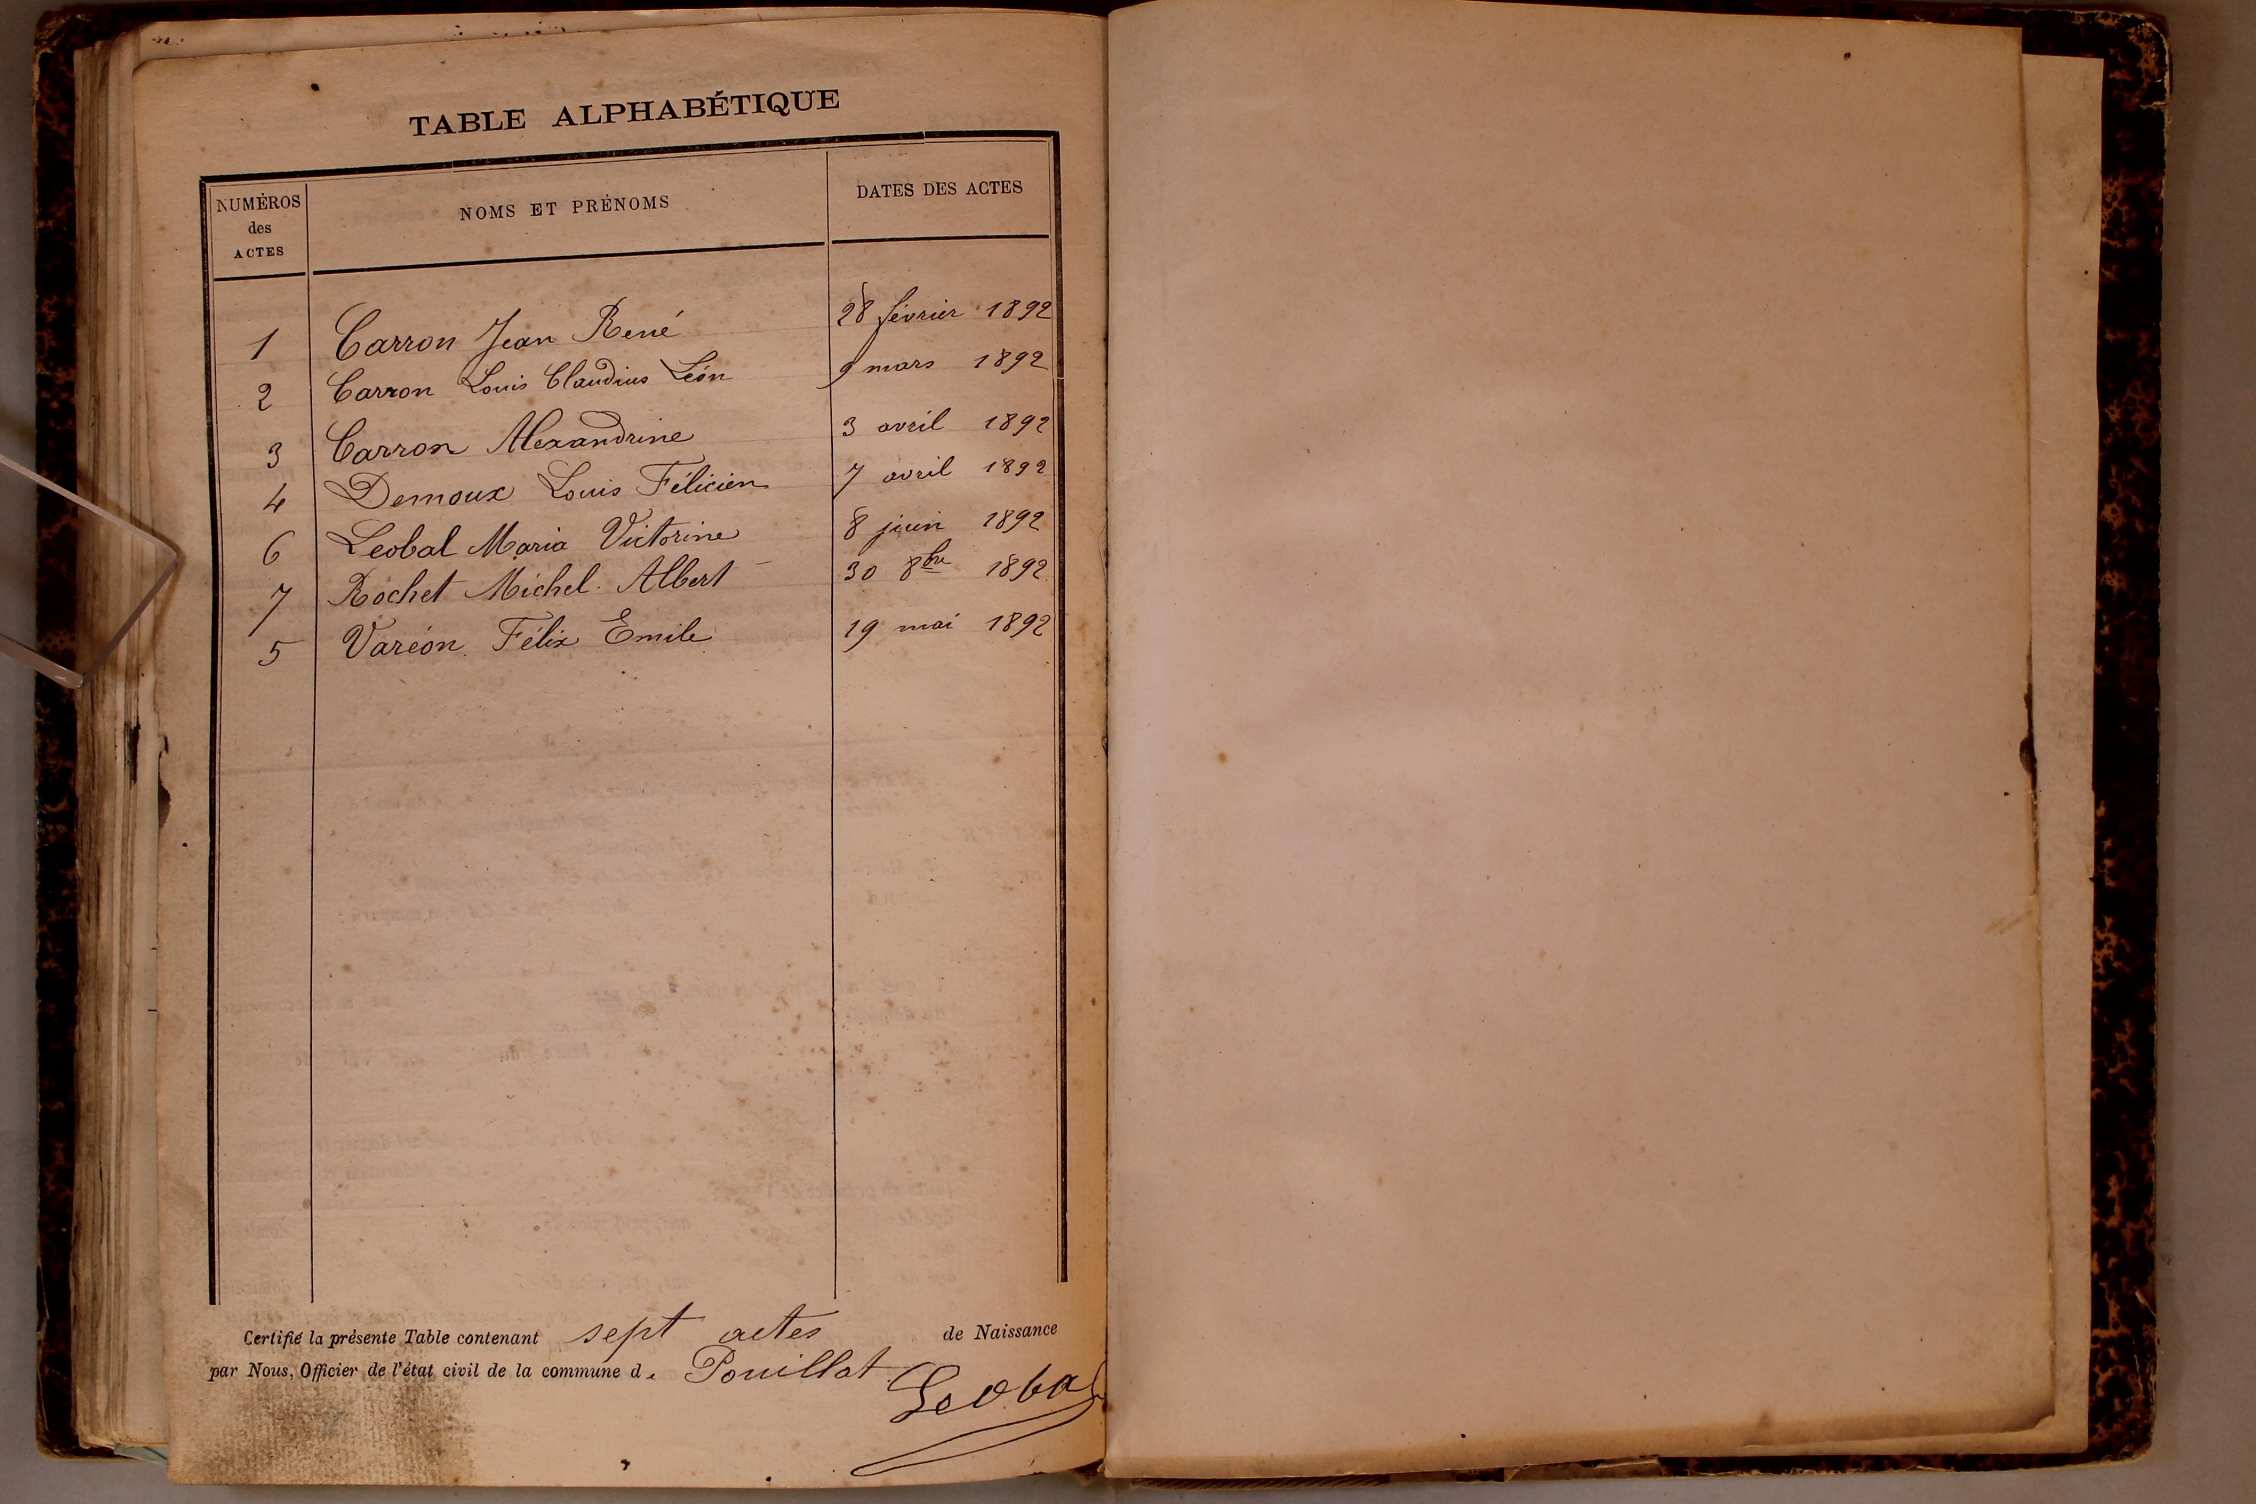 TABLE ALPHABÉTIQUE
NUMÉROS des ACTES NOMS ET PRÉNOMS DATES DES ACTES
1 Carron Jean René 28 février 1892
2 Carron Louis Claudius Léon 9 mars 1892
3 Carron Alexandrine 3 avril 1892
4 Demoux Louis Félicien 7 avril 1892
6 Leobal Maria Victorine 8 juin 1892
7 Rochet Michel Albert 30 8bre 1892
5 Varéon Félix Emile 19 mai 1892
Certifié la présente Table contenant sept actes de Naissance
par Nous, Officier de l'état civil de la commune de Pouillat
Leobal